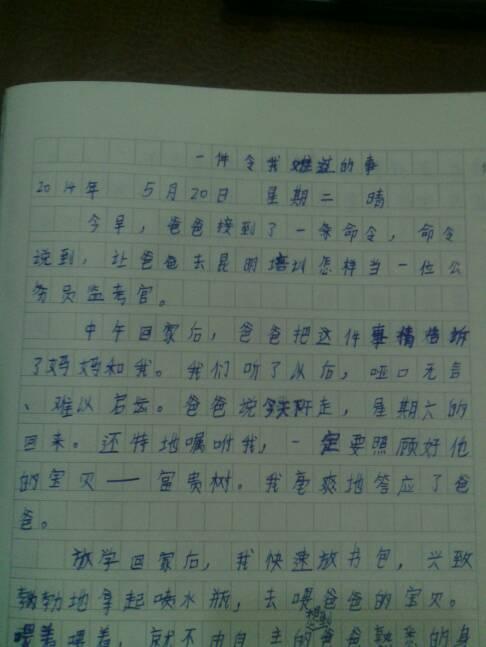 一件令我难过的事
2014年 5月20日 星期二 晴
今早，爸爸接到了一条命令，命令
说到，让爸爸去昆明培训怎样当一位公
务员监考官。
中午回家后，爸爸把这件事情告诉
了妈妈和我。我们听了以后，哑口无言
、难以若云。爸爸说今天下午走，星期六的
回来。还特地嘱咐我，一定要照顾好他
的宝贝——富贵树。我豪爽地答应了爸
爸。
放学回家后，我快速放书包，兴致
勃勃地拿起喷水瓶，去喂爸爸的宝贝。
喂着喂着，就不由自主的想到爸爸熟悉的身